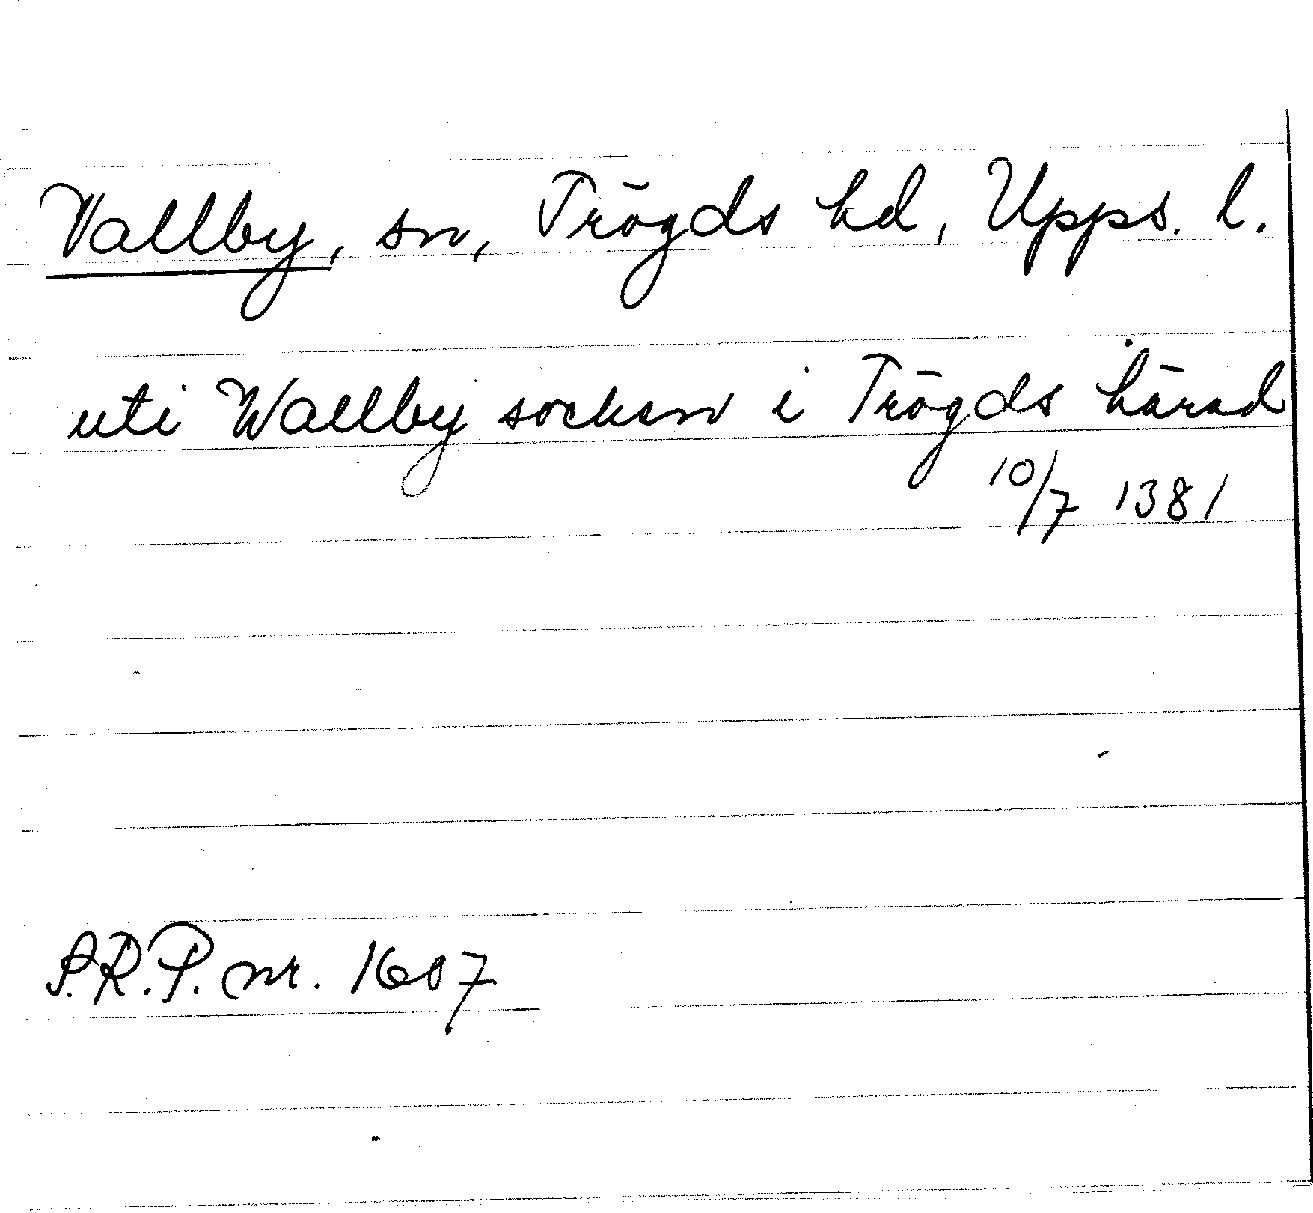 Vallby, sn, Trögds hd, Upps. l.
uti Wallby socken i Trögds härad
10/7 1381
S.R.P. nr. 1607